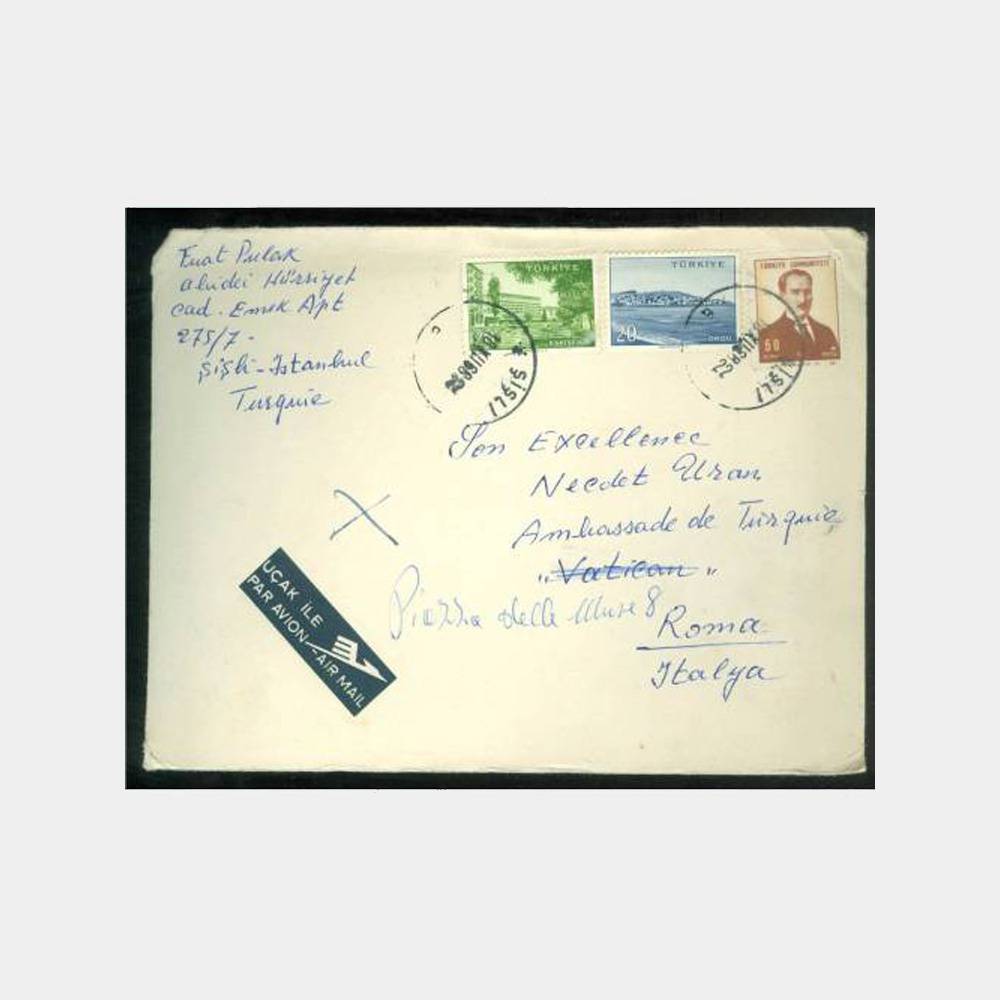 Fuat Pulak
abidei Hürriyet
cad. Emek Apt
275/7 -
Şişli-Istanbul
Turquie
TÜRKİYE
TÜRKİYE
20
ORDU
TÜRKİYE CUMHURİYETİ
50
ŞİŞLİ
ŞİŞLİ
Son Excellence
Necdet Uran
Ambassade de Turquie
"Vatican"
Piazza delle Muse 8
Roma
Italya
UÇAK İLE
PAR AVION—AIR MAIL